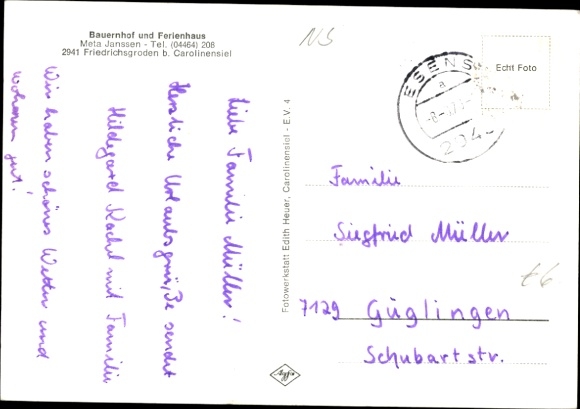 Bauernhof und Ferienhaus
Meta Janssen - Tel. (04464) 208
2941 Friedrichsgroden b. Carolinensiel
Liebe Familie Müller!
Herzliche Urlaubsgrüße sendet
Hildegard Kachel mit Familie
Wir haben schönes Wetter und
wohnen gut!
Fotowerkstatt Edith Heuer, Carolinensiel - E.V. 4
NS
ESENS
a
Echt Foto
Familie
Siegfried Müller
7129 Güglingen
Schubartstr.